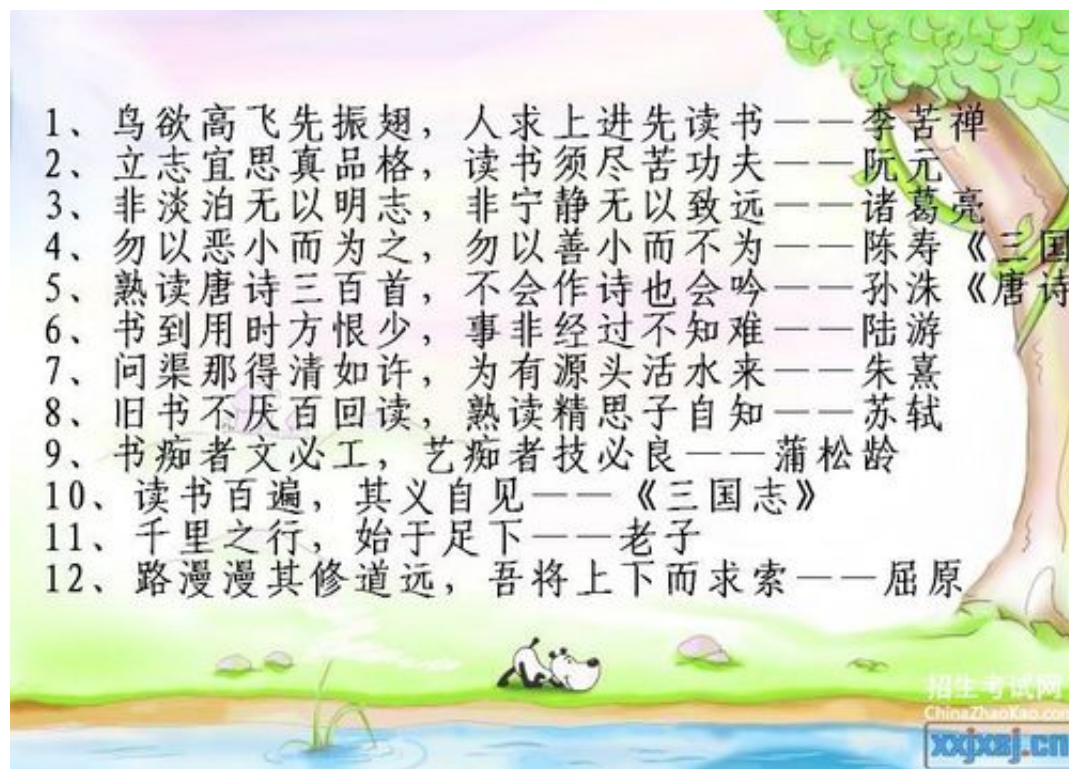 1、鸟欲高飞先振翅，人求上进先读书——李苦禅
2、立志宜思真品格，读书须尽苦功夫——阮元
3、非淡泊无以明志，非宁静无以致远——诸葛亮
4、勿以恶小而为之，勿以善小而不为——陈寿《三国
5、熟读唐诗三百首，不会作诗也会吟——孙洙《唐诗
6、书到用时方恨少，事非经过不知难——陆游
7、问渠那得清如许，为有源头活水来——朱熹
8、旧书不厌百回读，熟读精思子自知——苏轼
9、书痴者文必工，艺痴者技必良——蒲松龄
10、读书百遍，其义自见——《三国志》
11、千里之行，始于足下——老子
12、路漫漫其修道远，吾将上下而求索——屈原
招生考试网
ChinaZhaoKao.com
xxjxsj.cn